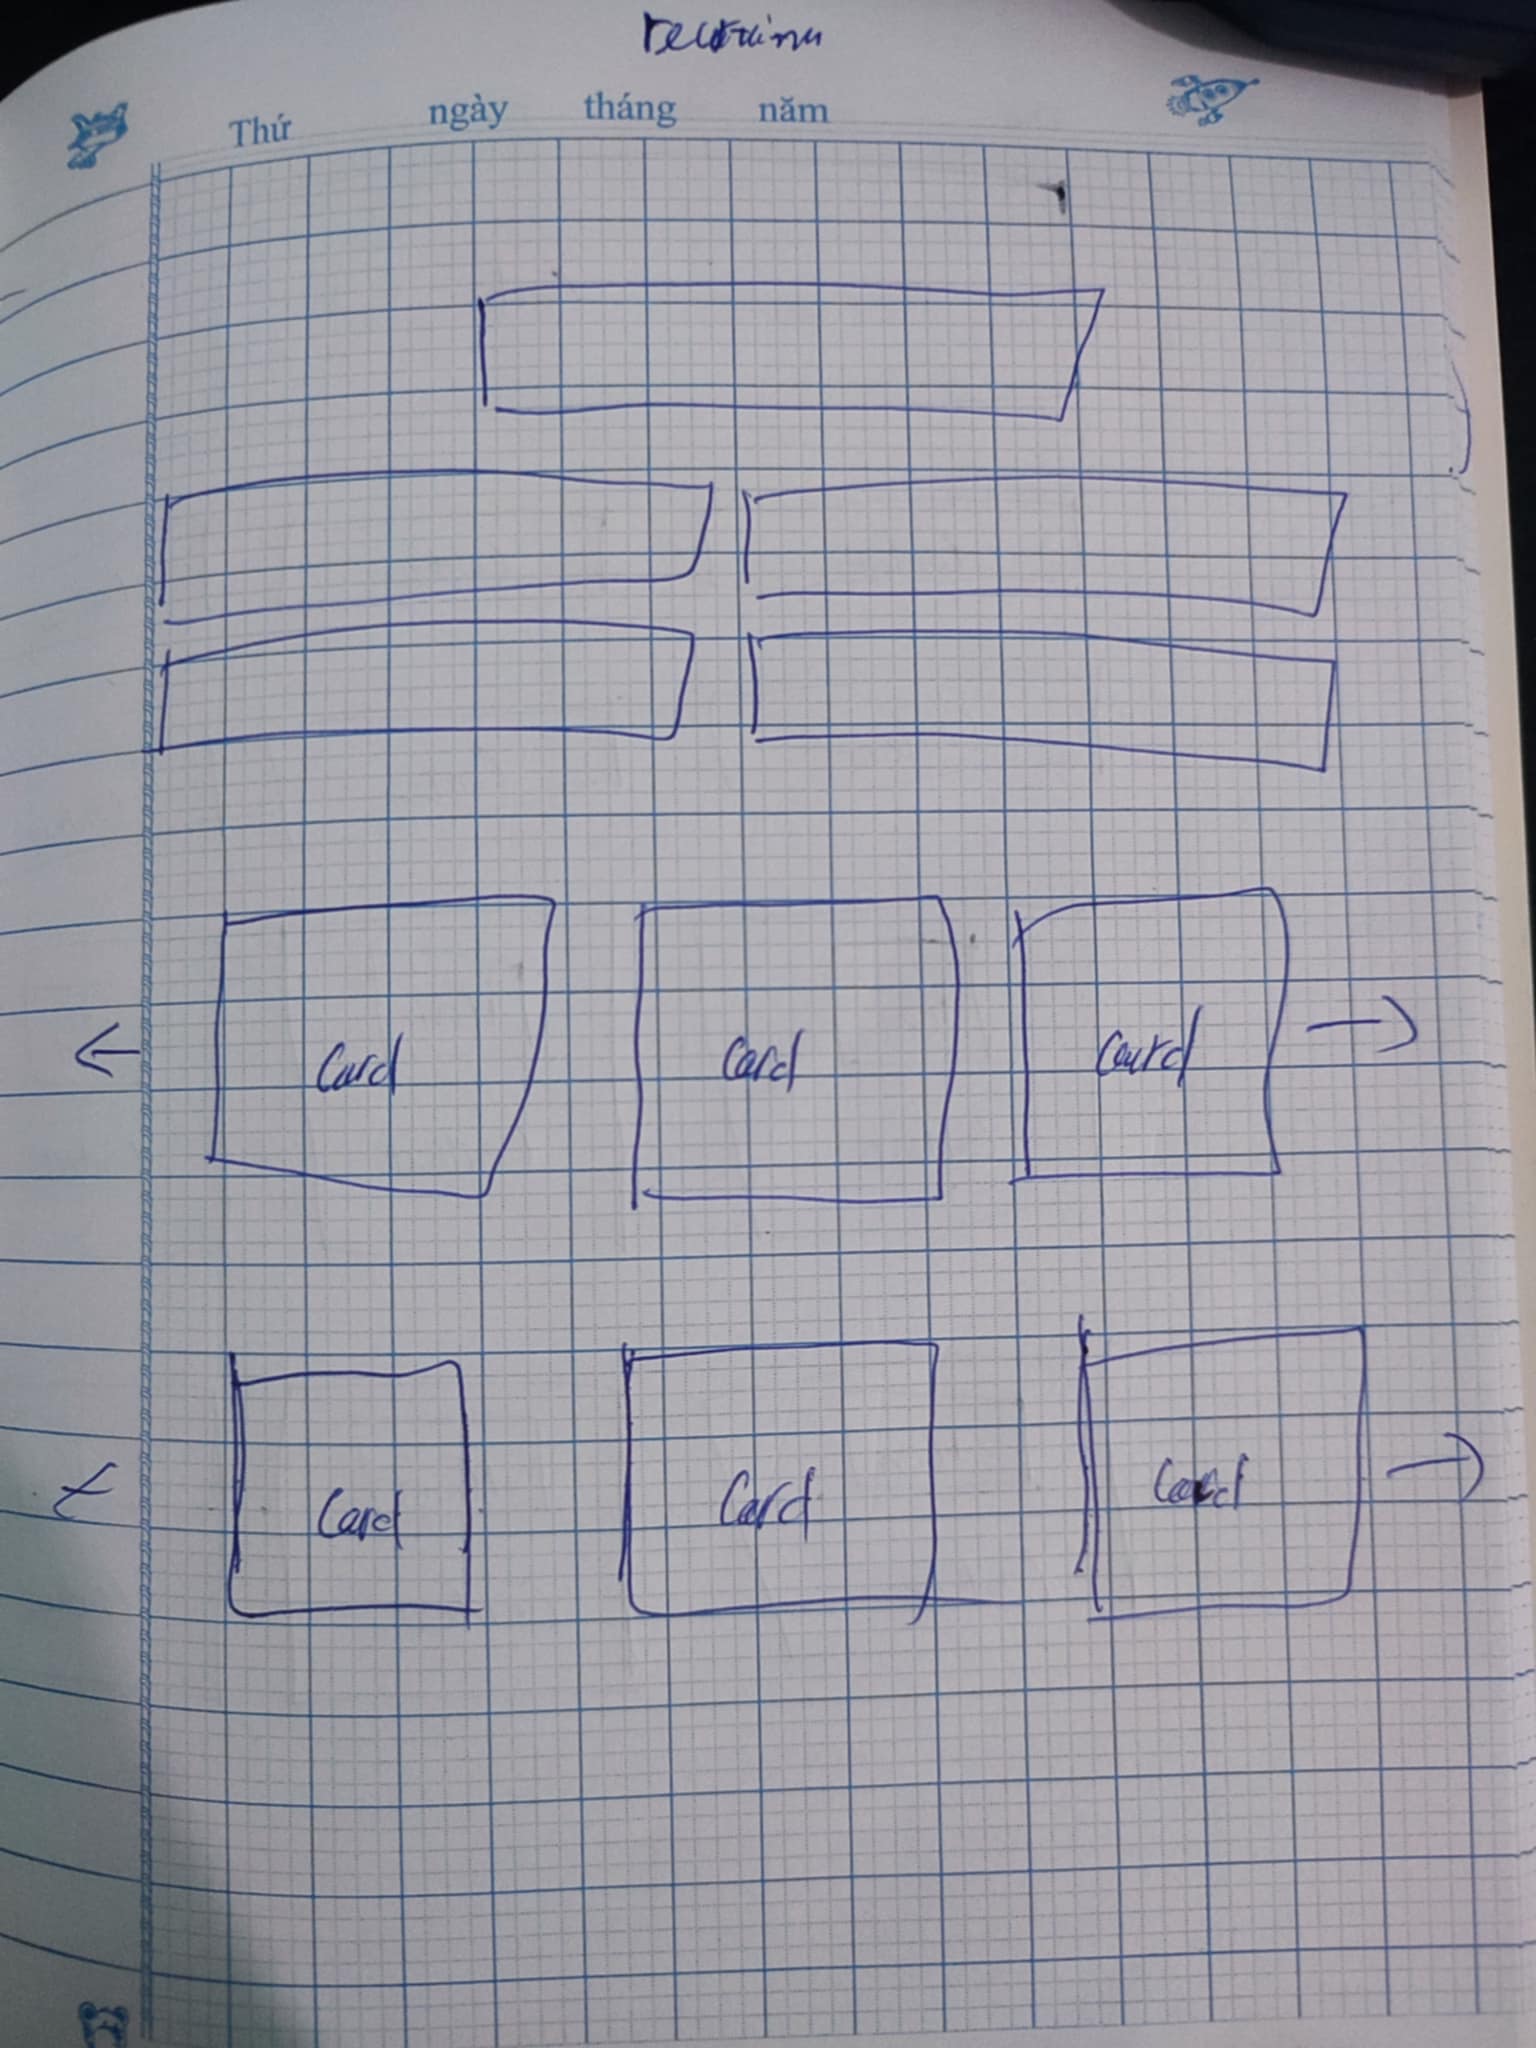 Thứ ngày tháng năm
Card Card Card
Card Card Card